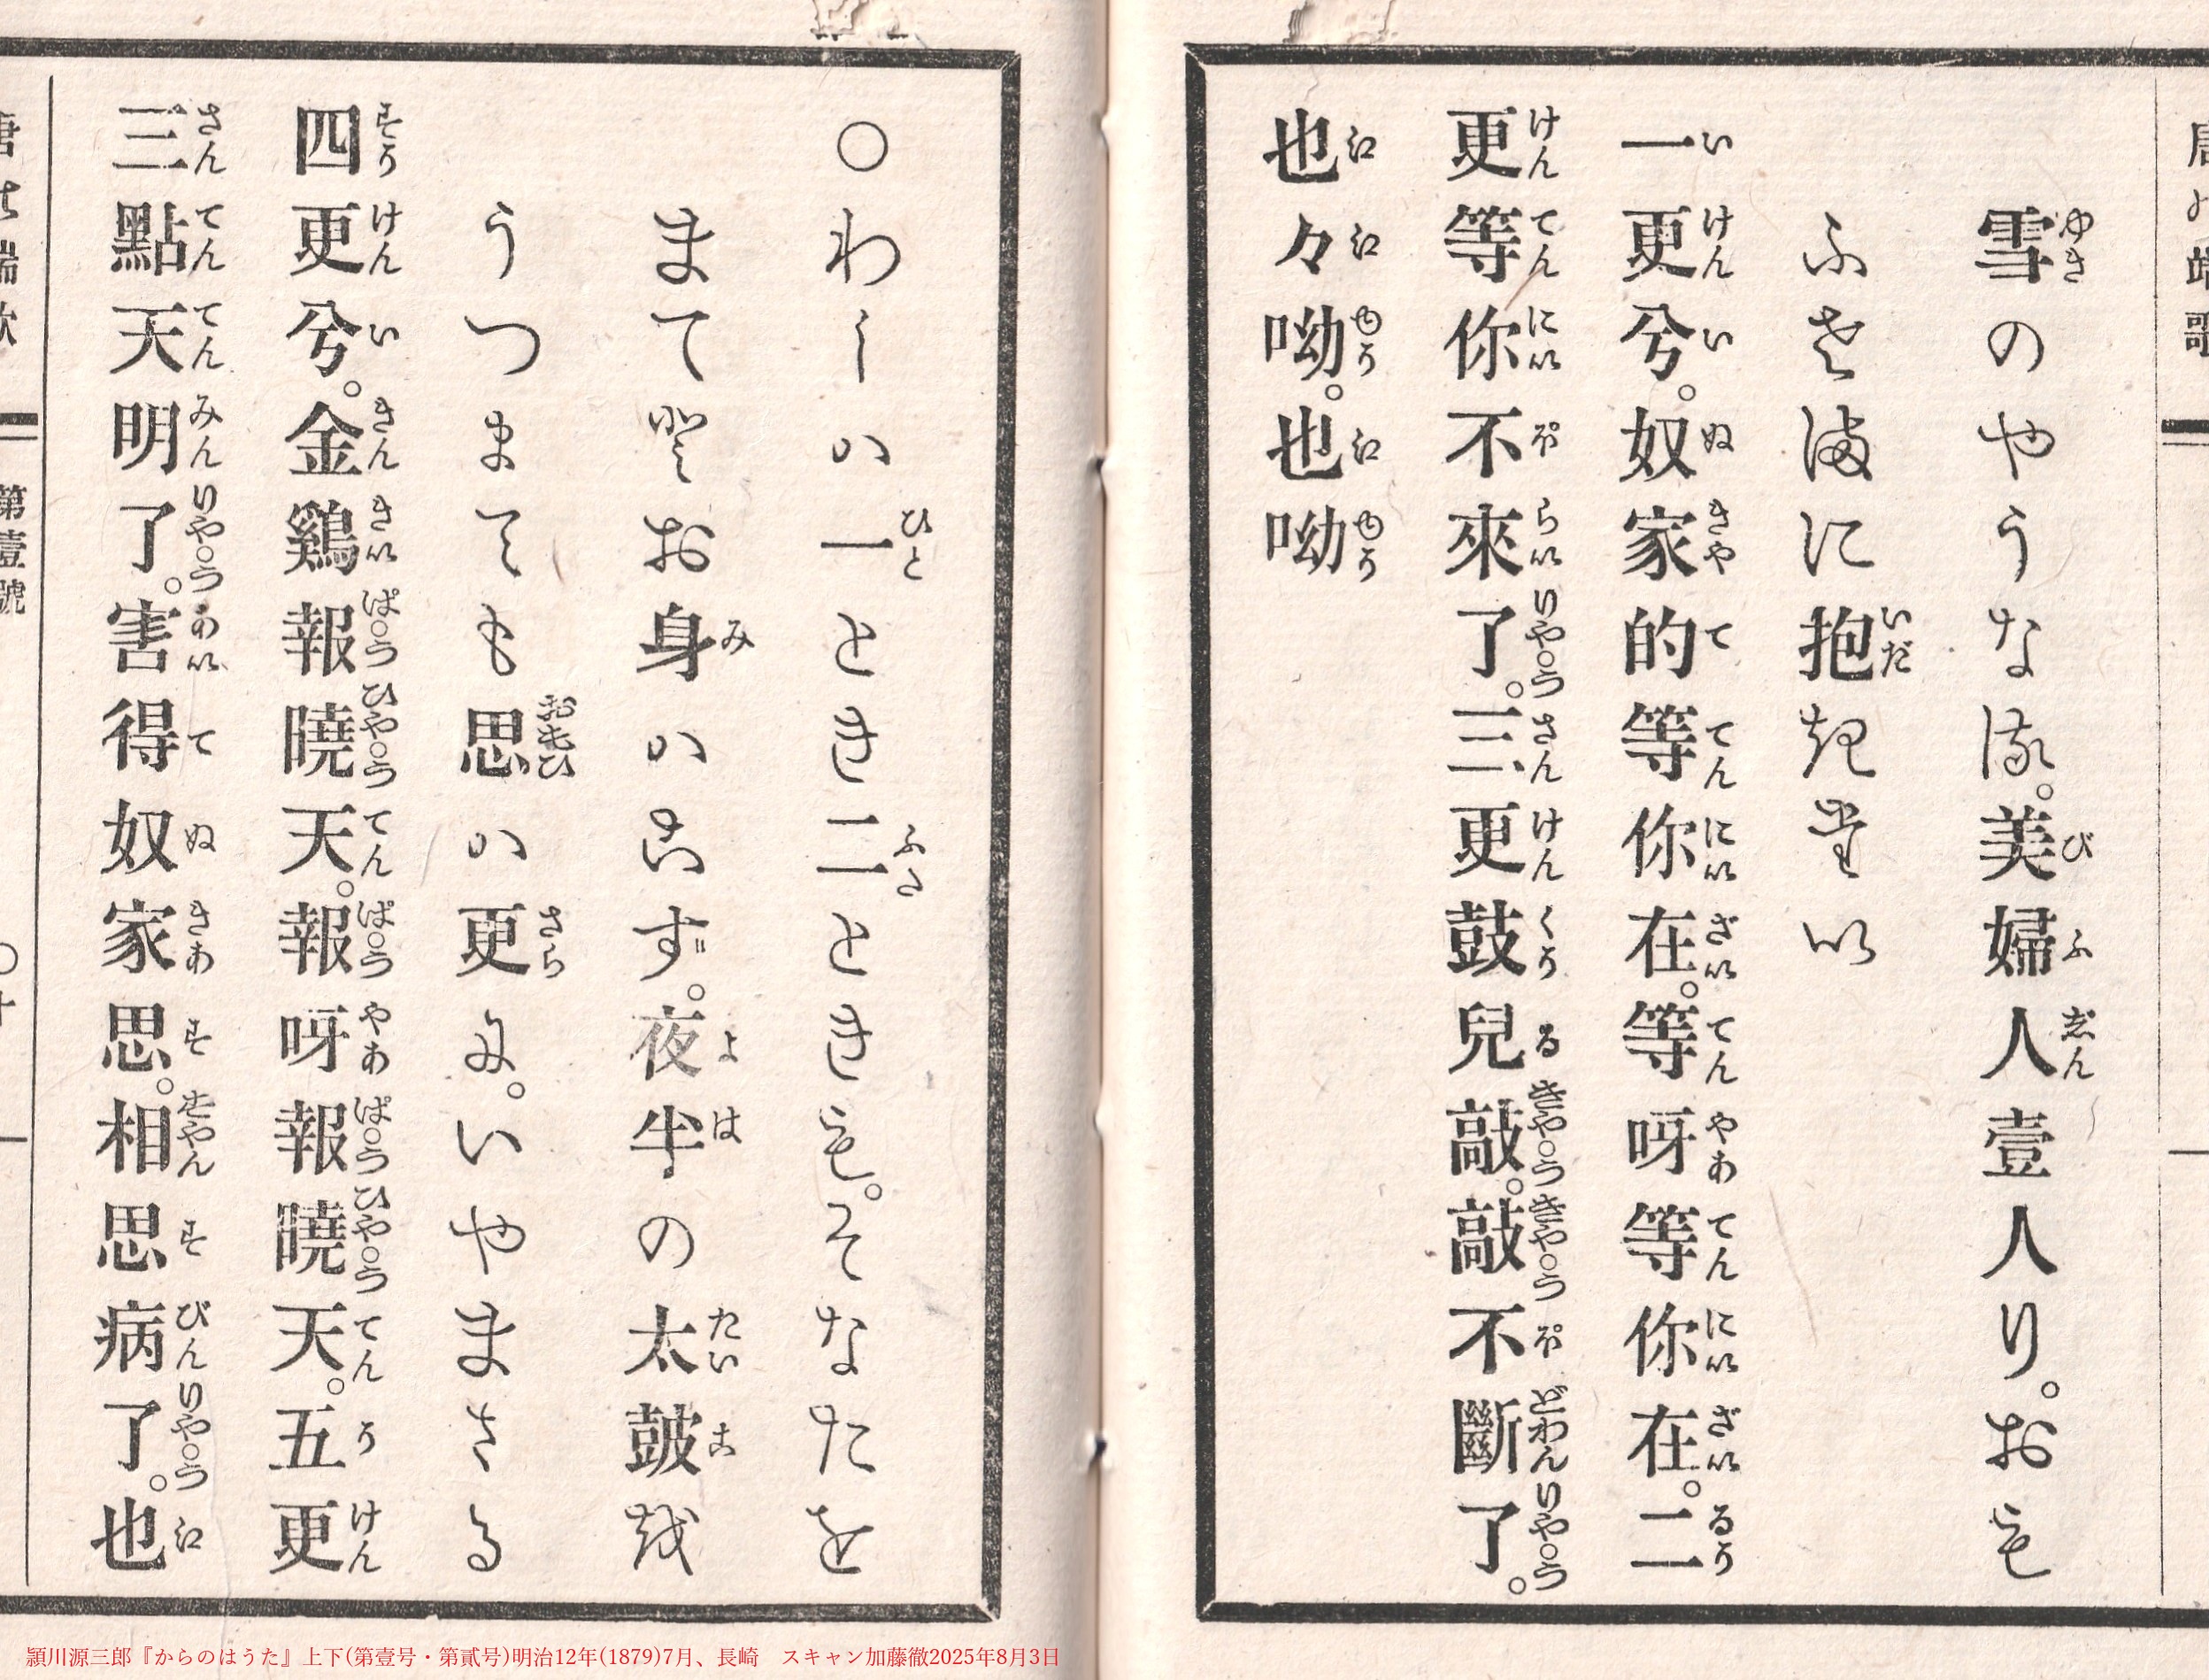 雪のやうな機。美婦人壹人り。おも
ふさまに抱起たい
一更兮。奴家的等你在。等呀等你在。二
更等你不來了。三更鼓兒敲。敲不斷了。
也々呦。也呦
〇わしハ一とき二ときも。そなたを
まてどお身ハこず。夜半の太皷を
うつまても思ハ更に。いやまさる
四更兮。金鷄報曉天。報呀報曉天。五更
三點天明了。害得奴家思。相思病了。也
第壹號
頴川源三郎『からのはうた』上下(第壹号・第貳号)明治12年(1879)7月、長崎　スキャン加藤徹2025年8月3日